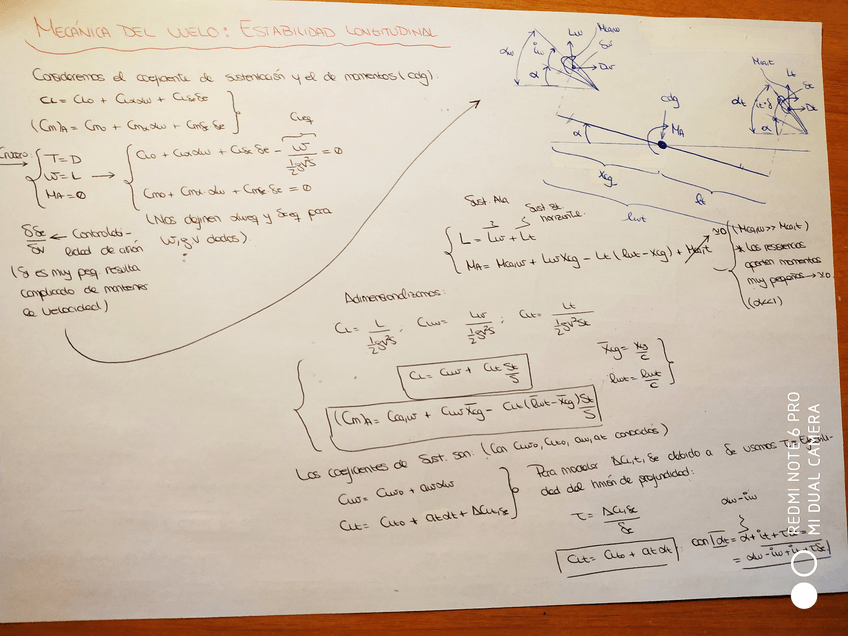 MECÁNICA DEL VUELO: ESTABILIDAD LONGITUDINAL
Consideremos el coeficiente de sustentación y el de momentos (cdg):
CL = CL0 + CLα αw + CLδe δe
(Cm)A = Cm0 + Cmα αw + Cmδe δe
T = D
W = L
MA = 0
CLeq
CL0 + CLα αw + CLδe δe - W / ½ρV²S = 0
Cm0 + Cmα αw + Cmδe δe = 0
(Nos definen αweq y δeeq para
W, ρ, V dados).
δδe/δV ← Controlabi-
lidad de avión
(si es muy peq. resulta
complicado de mantener
la velocidad)
αw iw α Lw Mcaw Dw
cdg
MA
α
xcg
lt
lwt
Mca,t Lt δe Dt αt α
Sust. Ala
Sust. est. horizonte.
L = Lw + Lt
MA = Mca,w + Lw xcg - Lt (lwt - xcg) + Mca,t
≈0 (Mca,w >> Mca,t)
* Las resistencias
aportan momentos
muy pequeños → ≈0
(α<<1)
Adimensionalizamos:
CL = L / ½ρV²S ; CLw = Lw / ½ρV²S ; CLt = Lt / ½ρV²St
CL = CLw + CLt St/S
x̄cg = xcg/c
l̄wt = lwt/c
(Cm)A = Cca,w + CLw x̄cg - CLt (l̄wt - x̄cg) St/S
Los coeficientes de Sust. son: (Con CLw0, CLt0, aw, at conocidos)
CLw = CLw0 + aw αw
CLt = CLt0 + at αt + ΔCLt,δe
Para modelar ΔCLt,δe debido a δe usamos
dad del timón de profundidad:
τ = ΔCLt,δe / δe
αw - iw
CLt = CLt0 + at αt ; con αt = α + it + τδe =
= αw - iw + it + τδe
REDMI NOTE 6 PRO
MI DUAL CAMERA